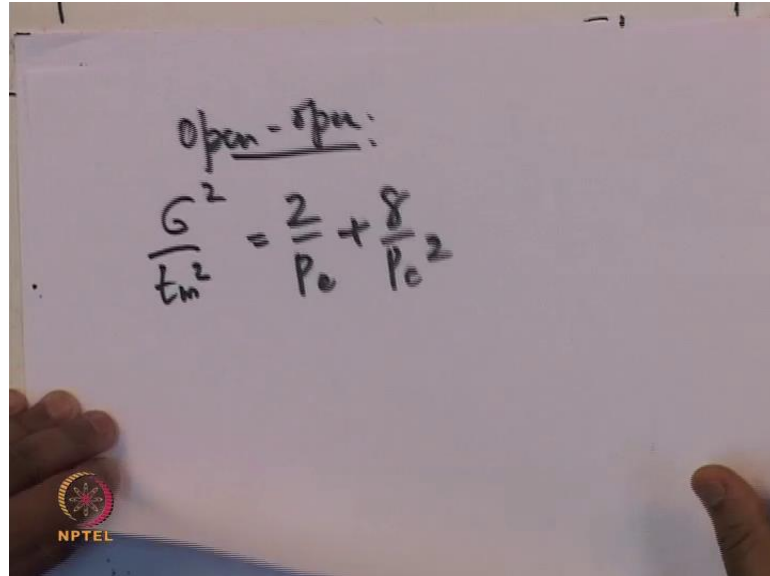 Open-open:
σ²/tm² = 2/Pe + 8/Pe²
NPTEL